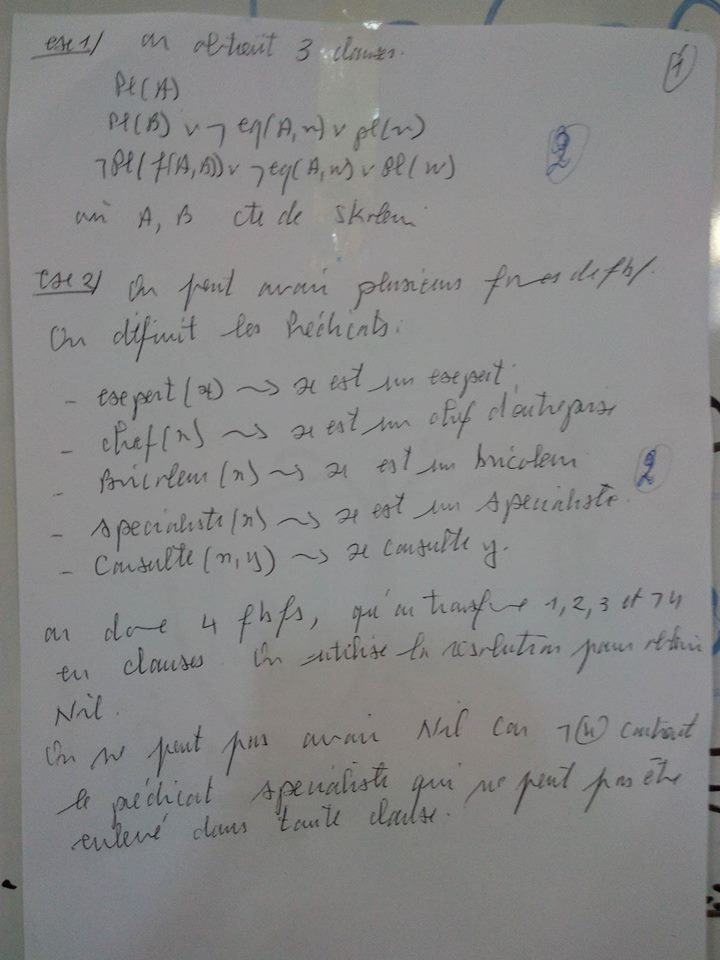 exe 1/ on obtient 3 clauses.
1
Pl(A)
Pl(B) ∨ ¬ eq(A,x) ∨ pl(x)
2
¬Pl(f(A,B)) ∨ ¬eq(A,w) ∨ Pl(w)
où A, B cte de Skolem
Exe 2/ On peut avoir plusieurs de fbf.
On définit les Prédicats:
- expert(x) ⇝ x est un expert.
- chef(x) ⇝ x est un chef d'entreprise
- Bricoleur(x) ⇝ x est un bricoleur
2
- specialiste(x) ⇝ x est un specialiste.
- Consulte(x,y) ⇝ x consulte y.
on donne 4 fbfs, qu'on transforme 1, 2, 3 et ¬4
en clauses. On utilise la résolution pour obtenir
Nil.
On ne peut pas avoir Nil car ¬(4) contient
le prédicat specialiste qui ne peut pas être
enlevé dans toute clause.